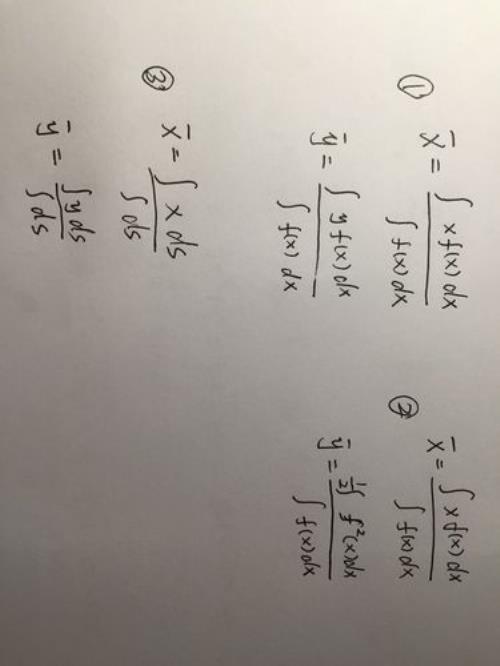 ① x̄ = ∫ x f(x) dx / ∫ f(x) dx
ȳ = ∫ y f(x) dx / ∫ f(x) dx
② x̄ = ∫ x f(x) dx / ∫ f(x) dx
ȳ = ½∫ f²(x) dx / ∫ f(x) dx
③ x̄ = ∫ x ds / ∫ ds
ȳ = ∫ y ds / ∫ ds